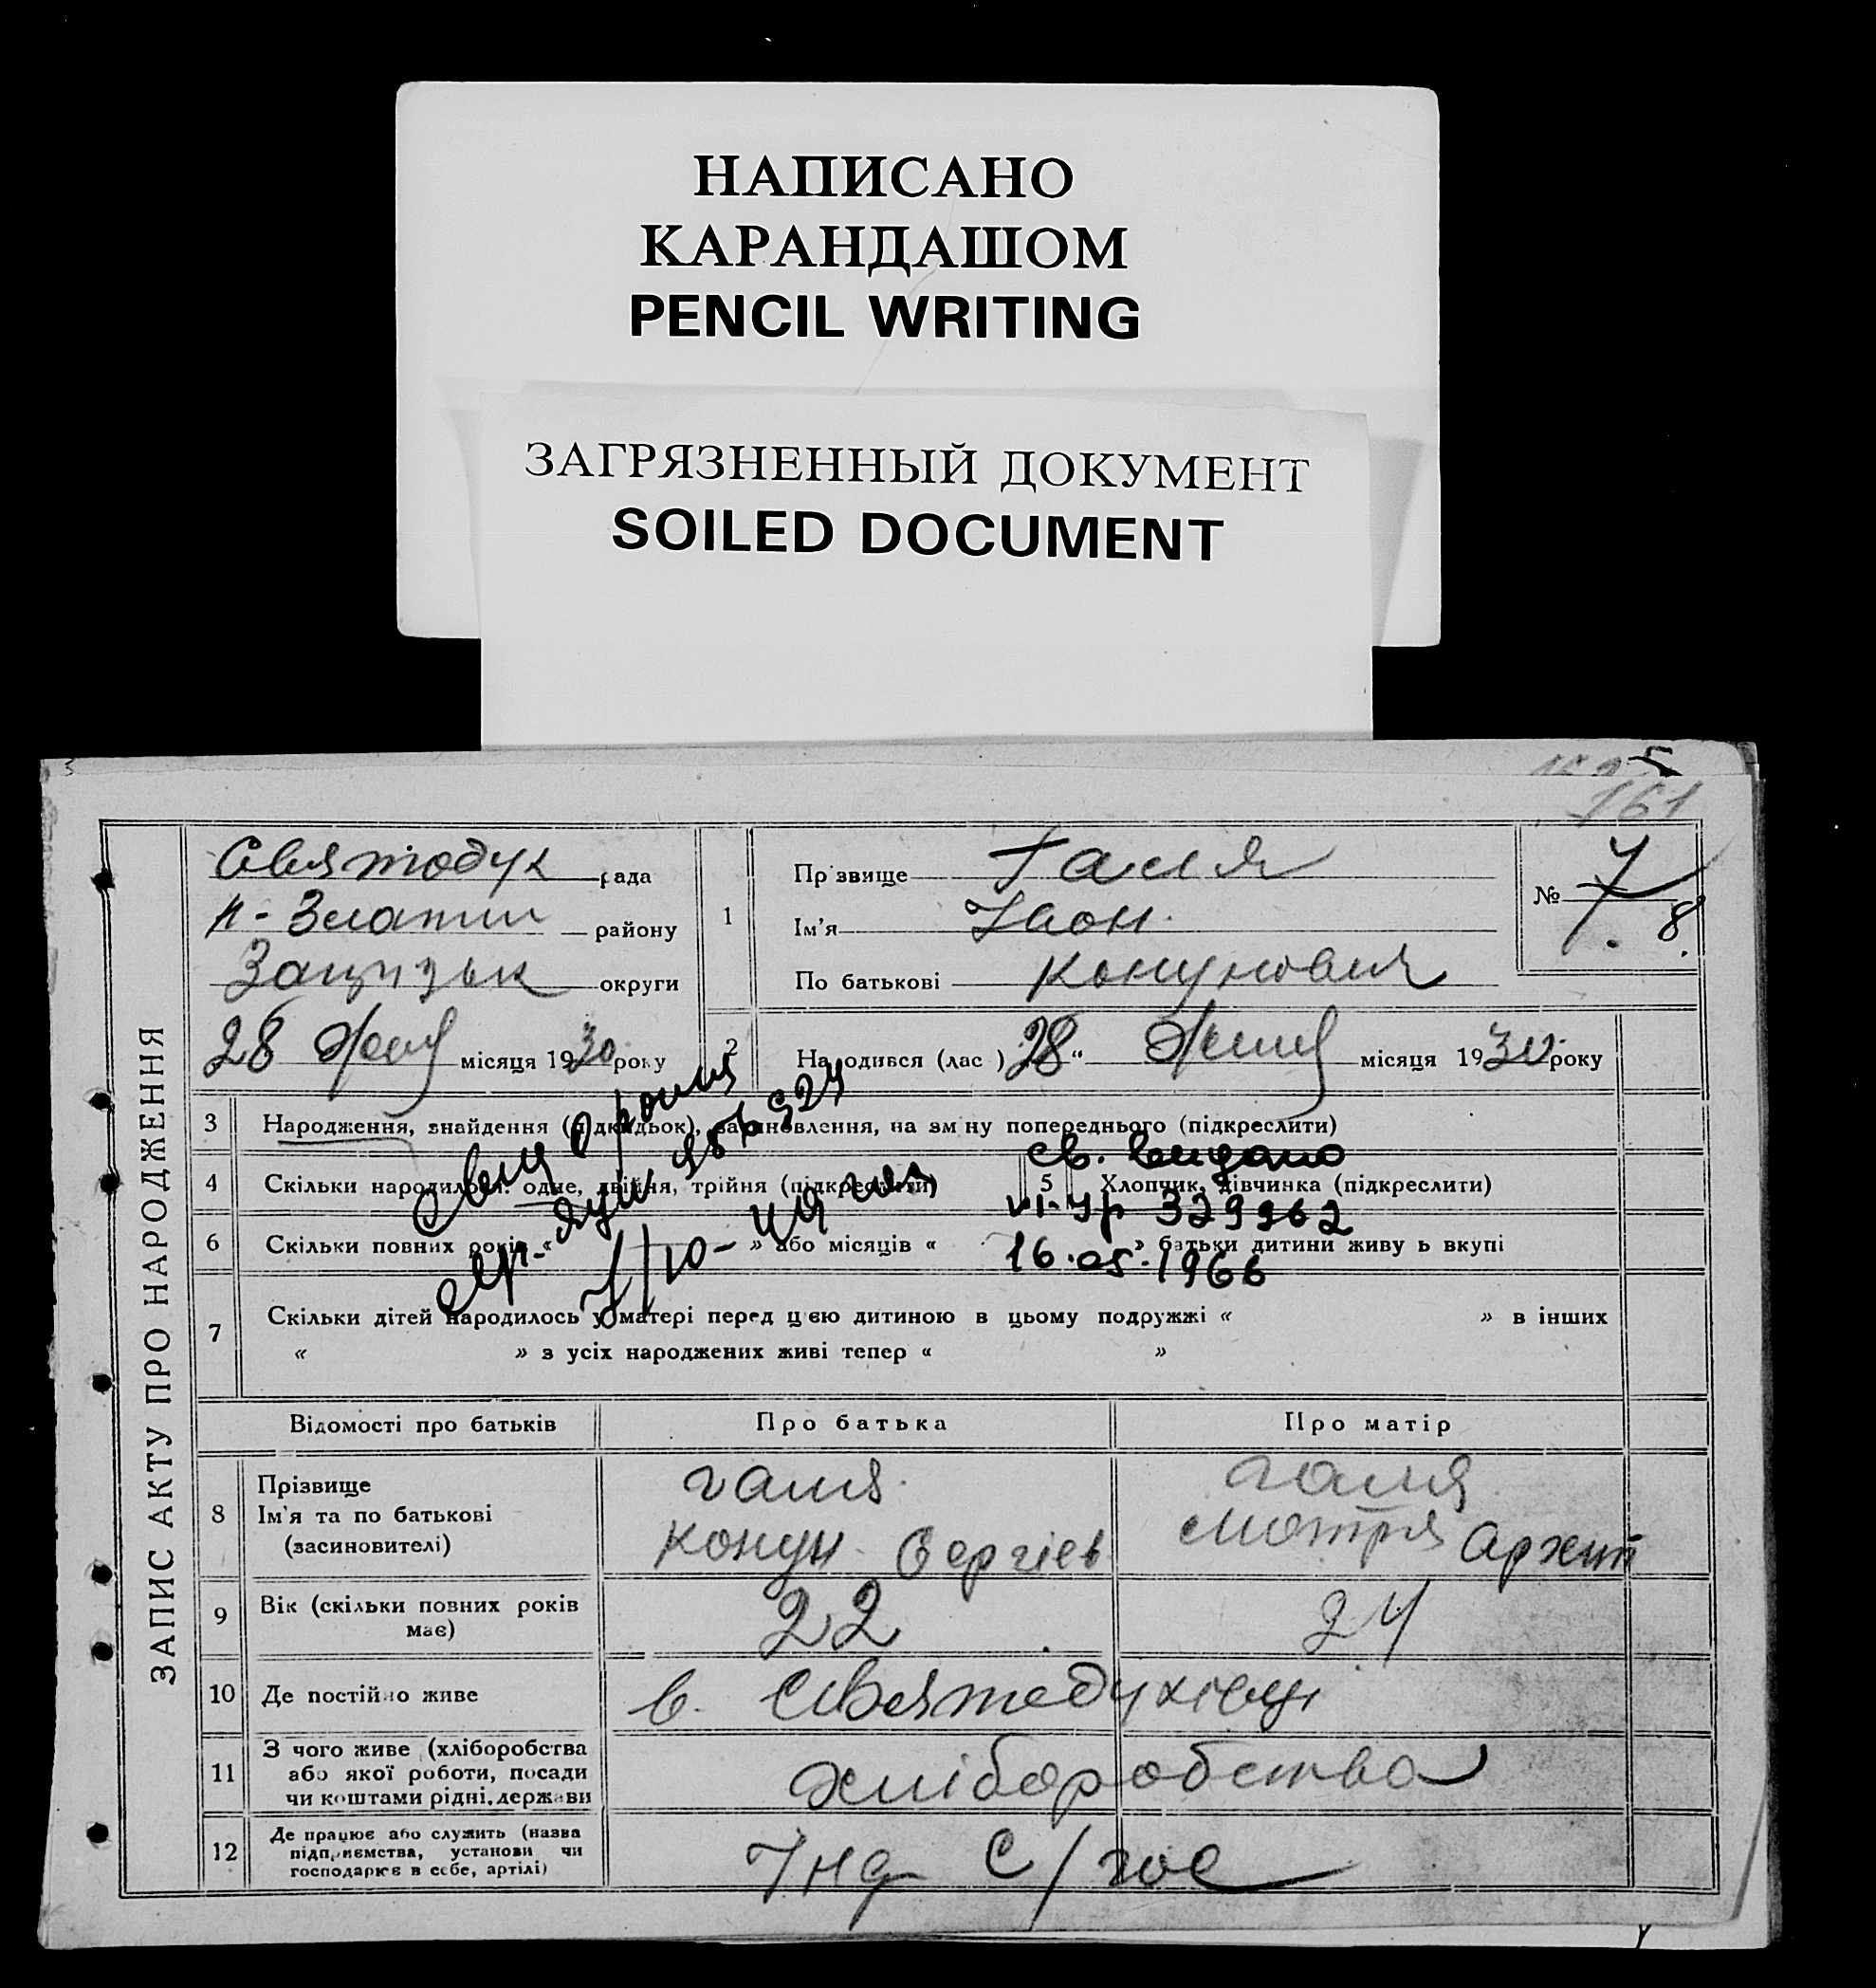 НАПИСАНО
КАРАНДАШОМ
PENCIL WRITING
ЗАГРЯЗНЕННЫЙ ДОКУМЕНТ
SOILED DOCUMENT
161
ЗАПИС АКТУ ПРО НАРОДЖЕННЯ
Святодух рада
н-Златпіл району
округи
28 місяця 1930 року
1
Прізвище Галя
Ім'я Іван
По батькові
№ 7
8.
2 Народився (лас ) 28 " місяця 1930 року
3 Народження, знайдення (підкидьок), засиновлення, на зміну попереднього (підкреслити)
4 Скільки народилося: одне, двійня, трійня (підкреслити)
5 Хлопчик, дівчинка (підкреслити)
6 Скільки повних років « » або місяців « » батьки дитини живуть вкупі
7 Скільки дітей народилось у матері перед цією дитиною в цьому подружжі « » в інших
« » з усіх народжених живі тепер « »
св. видано
VI-УР 339962
16.05.1966
Відомості про батьків Про батька Про матір
8 Прізвище
Ім'я та по батькові
(засиновителі)
Галя
Конун Сергієв
Галя
Мотря Архип
9 Вік (скільки повних років
має)
22 24
10 Де постійно живе в. Святодухівці
11 З чого живе (хліборобства
або якої роботи, посади
чи коштами рідні, держави
хліборобства
12 Де працює або служить (назва
підприємства, установи чи
господарює в себе, артілі)
Інд С/гос